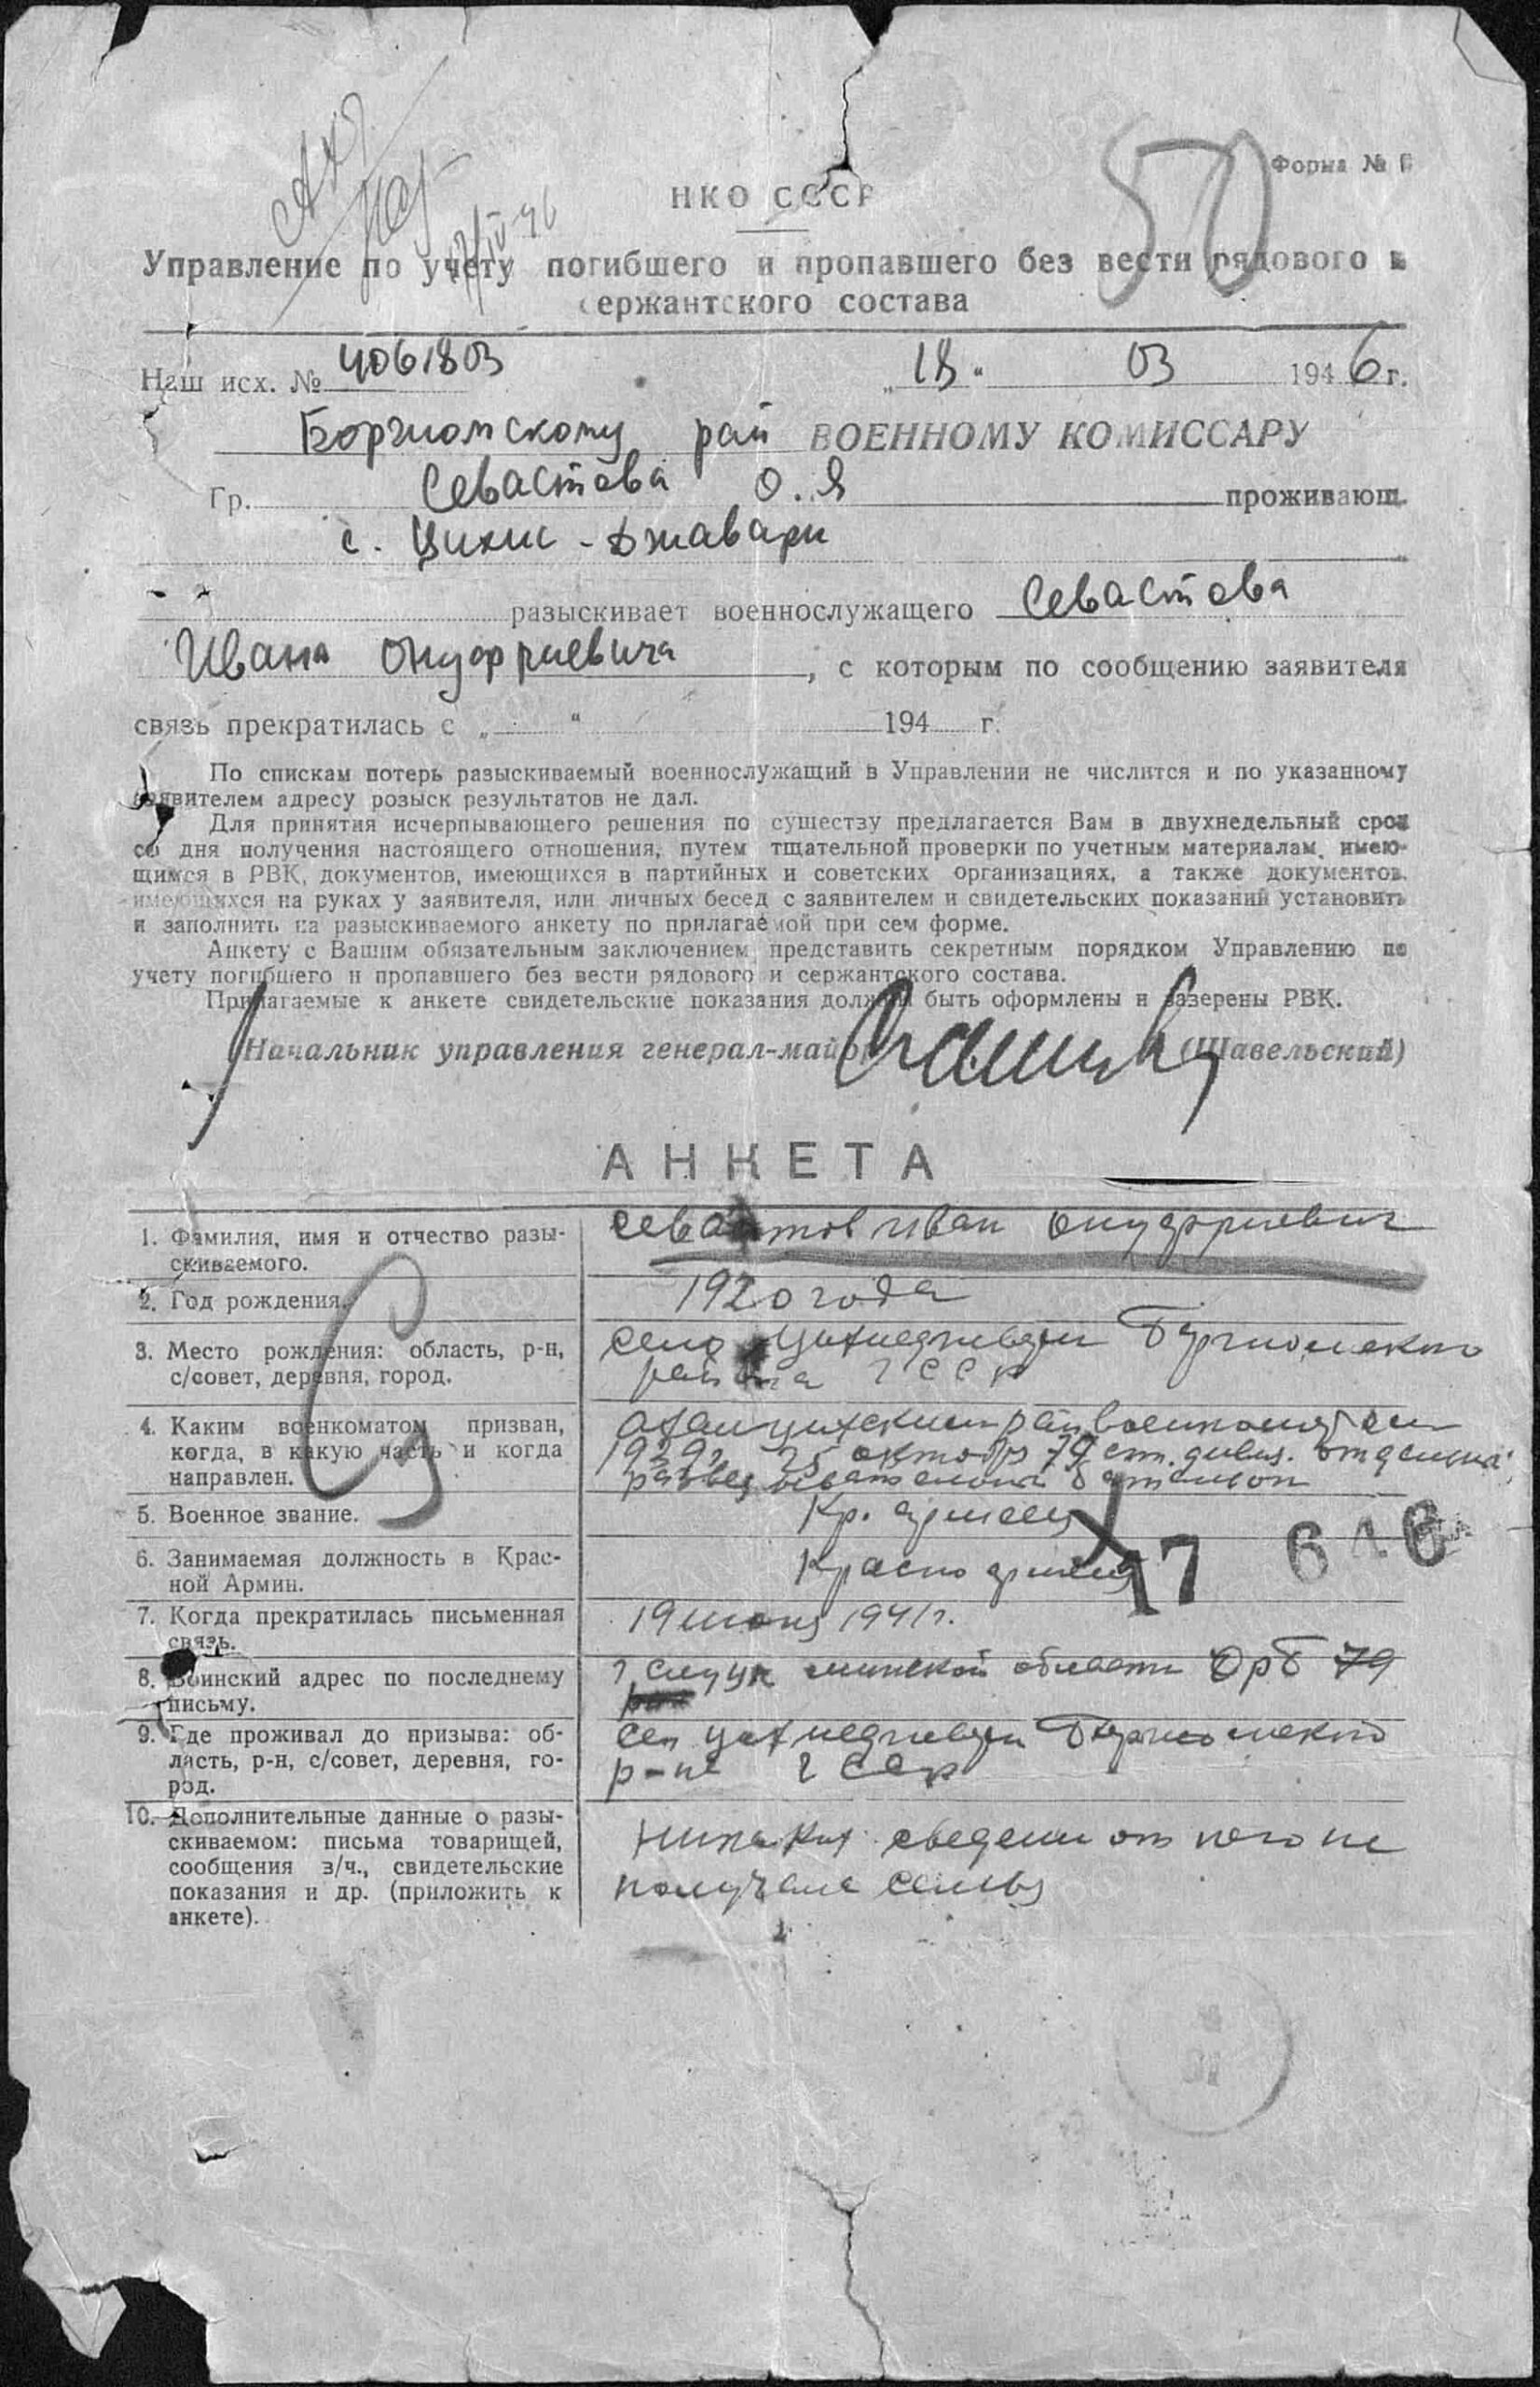 50
Форма № Б
НКО СССР
Управление по учету погибшего и пропавшего без вести рядового и
сержантского состава
Наш исх. № 4061803 „18“ 03 1946 г.
Боржиомскому рай ВОЕННОМУ КОМИССАРУ
Гр. Севастова О. Я проживающ.
с. Цихис-Джавари
разыскивает военнослужащего Севастова
Ивана Онуфриевича, с которым по сообщению заявителя
связь прекратилась с „ “ 194 г.
По спискам потерь разыскиваемый военнослужащий в Управлении не числится и по указанному
заявителем адресу розыск результатов не дал.
Для принятия исчерпывающего решения по существу предлагается Вам в двухнедельный срок
со дня получения настоящего отношения, путем тщательной проверки по учетным материалам, имею-
щимся в РВК, документов, имеющихся в партийных и советских организациях, а также документов,
имеющихся на руках у заявителя, или личных бесед с заявителем и свидетельских показаний установить
и заполнить на разыскиваемого анкету по прилагаемой при сем форме.
Анкету с Вашим обязательным заключением представить секретным порядком Управлению по
учету погибшего и пропавшего без вести рядового и сержантского состава.
Прилагаемые к анкете свидетельские показания должны быть оформлены и заверены РВК.
Начальник управления генерал-майор (Шавельский)
АНКЕТА
1. Фамилия, имя и отчество разы-
скиваемого.
Севастов Иван Онуфриевич
2. Год рождения.
1920 года
3. Место рождения: область, р-н,
с/совет, деревня, город.
село Цихисджвари Буржиомского
района ГССР
4. Каким военкоматом призван,
когда, в какую часть и когда
направлен.
Ахалцихским райвоенкоматом
1939г. 25 октябр 79 ст. дивиз. отдельный
разведывательный батальон
5. Военное звание.
Кр. армеец
6. Занимаемая должность в Крас-
ной Армии.
Красно армеец
17 646
7. Когда прекратилась письменная
связь.
19 июня 1941г.
8. Воинский адрес по последнему
письму.
г Слуцк минской области ОрБ 79
9. Где проживал до призыва: об-
ласть, р-н, с/совет, деревня, го-
род.
сел Цихисджвари Буржиомского
р-не ГССР
10. Дополнительные данные о разы-
скиваемом: письма товарищей,
сообщения в/ч., свидетельские
показания и др. (приложить к
анкете).
Никаких сведени от него не
получала семья